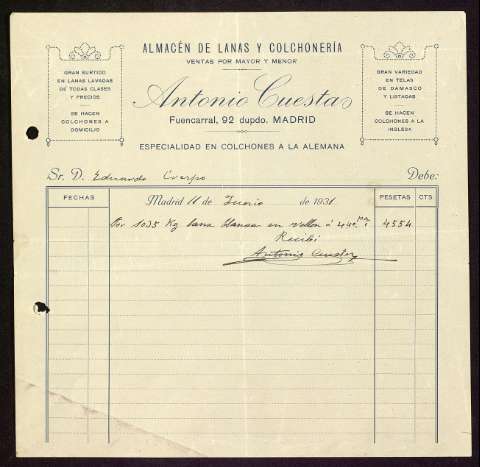 ALMACÉN DE LANAS Y COLCHONERÍA
VENTAS POR MAYOR Y MENOR
GRAN SURTIDO
EN LANAS LAVADAS
DE TODAS CLASES
Y PRECIOS
SE HACEN
COLCHONES A
DOMICILIO
Antonio Cuesta
Fuencarral, 92 dupdo. MADRID
ESPECIALIDAD EN COLCHONES A LA ALEMANA
GRAN VARIEDAD
EN TELAS
DE DAMASCO
Y LISTADAS
SE HACEN
COLCHONES A LA
INGLESA
Sr. D. Eduardo Crespo Debe:
FECHAS Madrid 11 de Junio de 1931 PESETAS CTS.
Por 1035 Kg lana blanca en vellon á 4'40 4554
Recibí
Antonio Cuesta